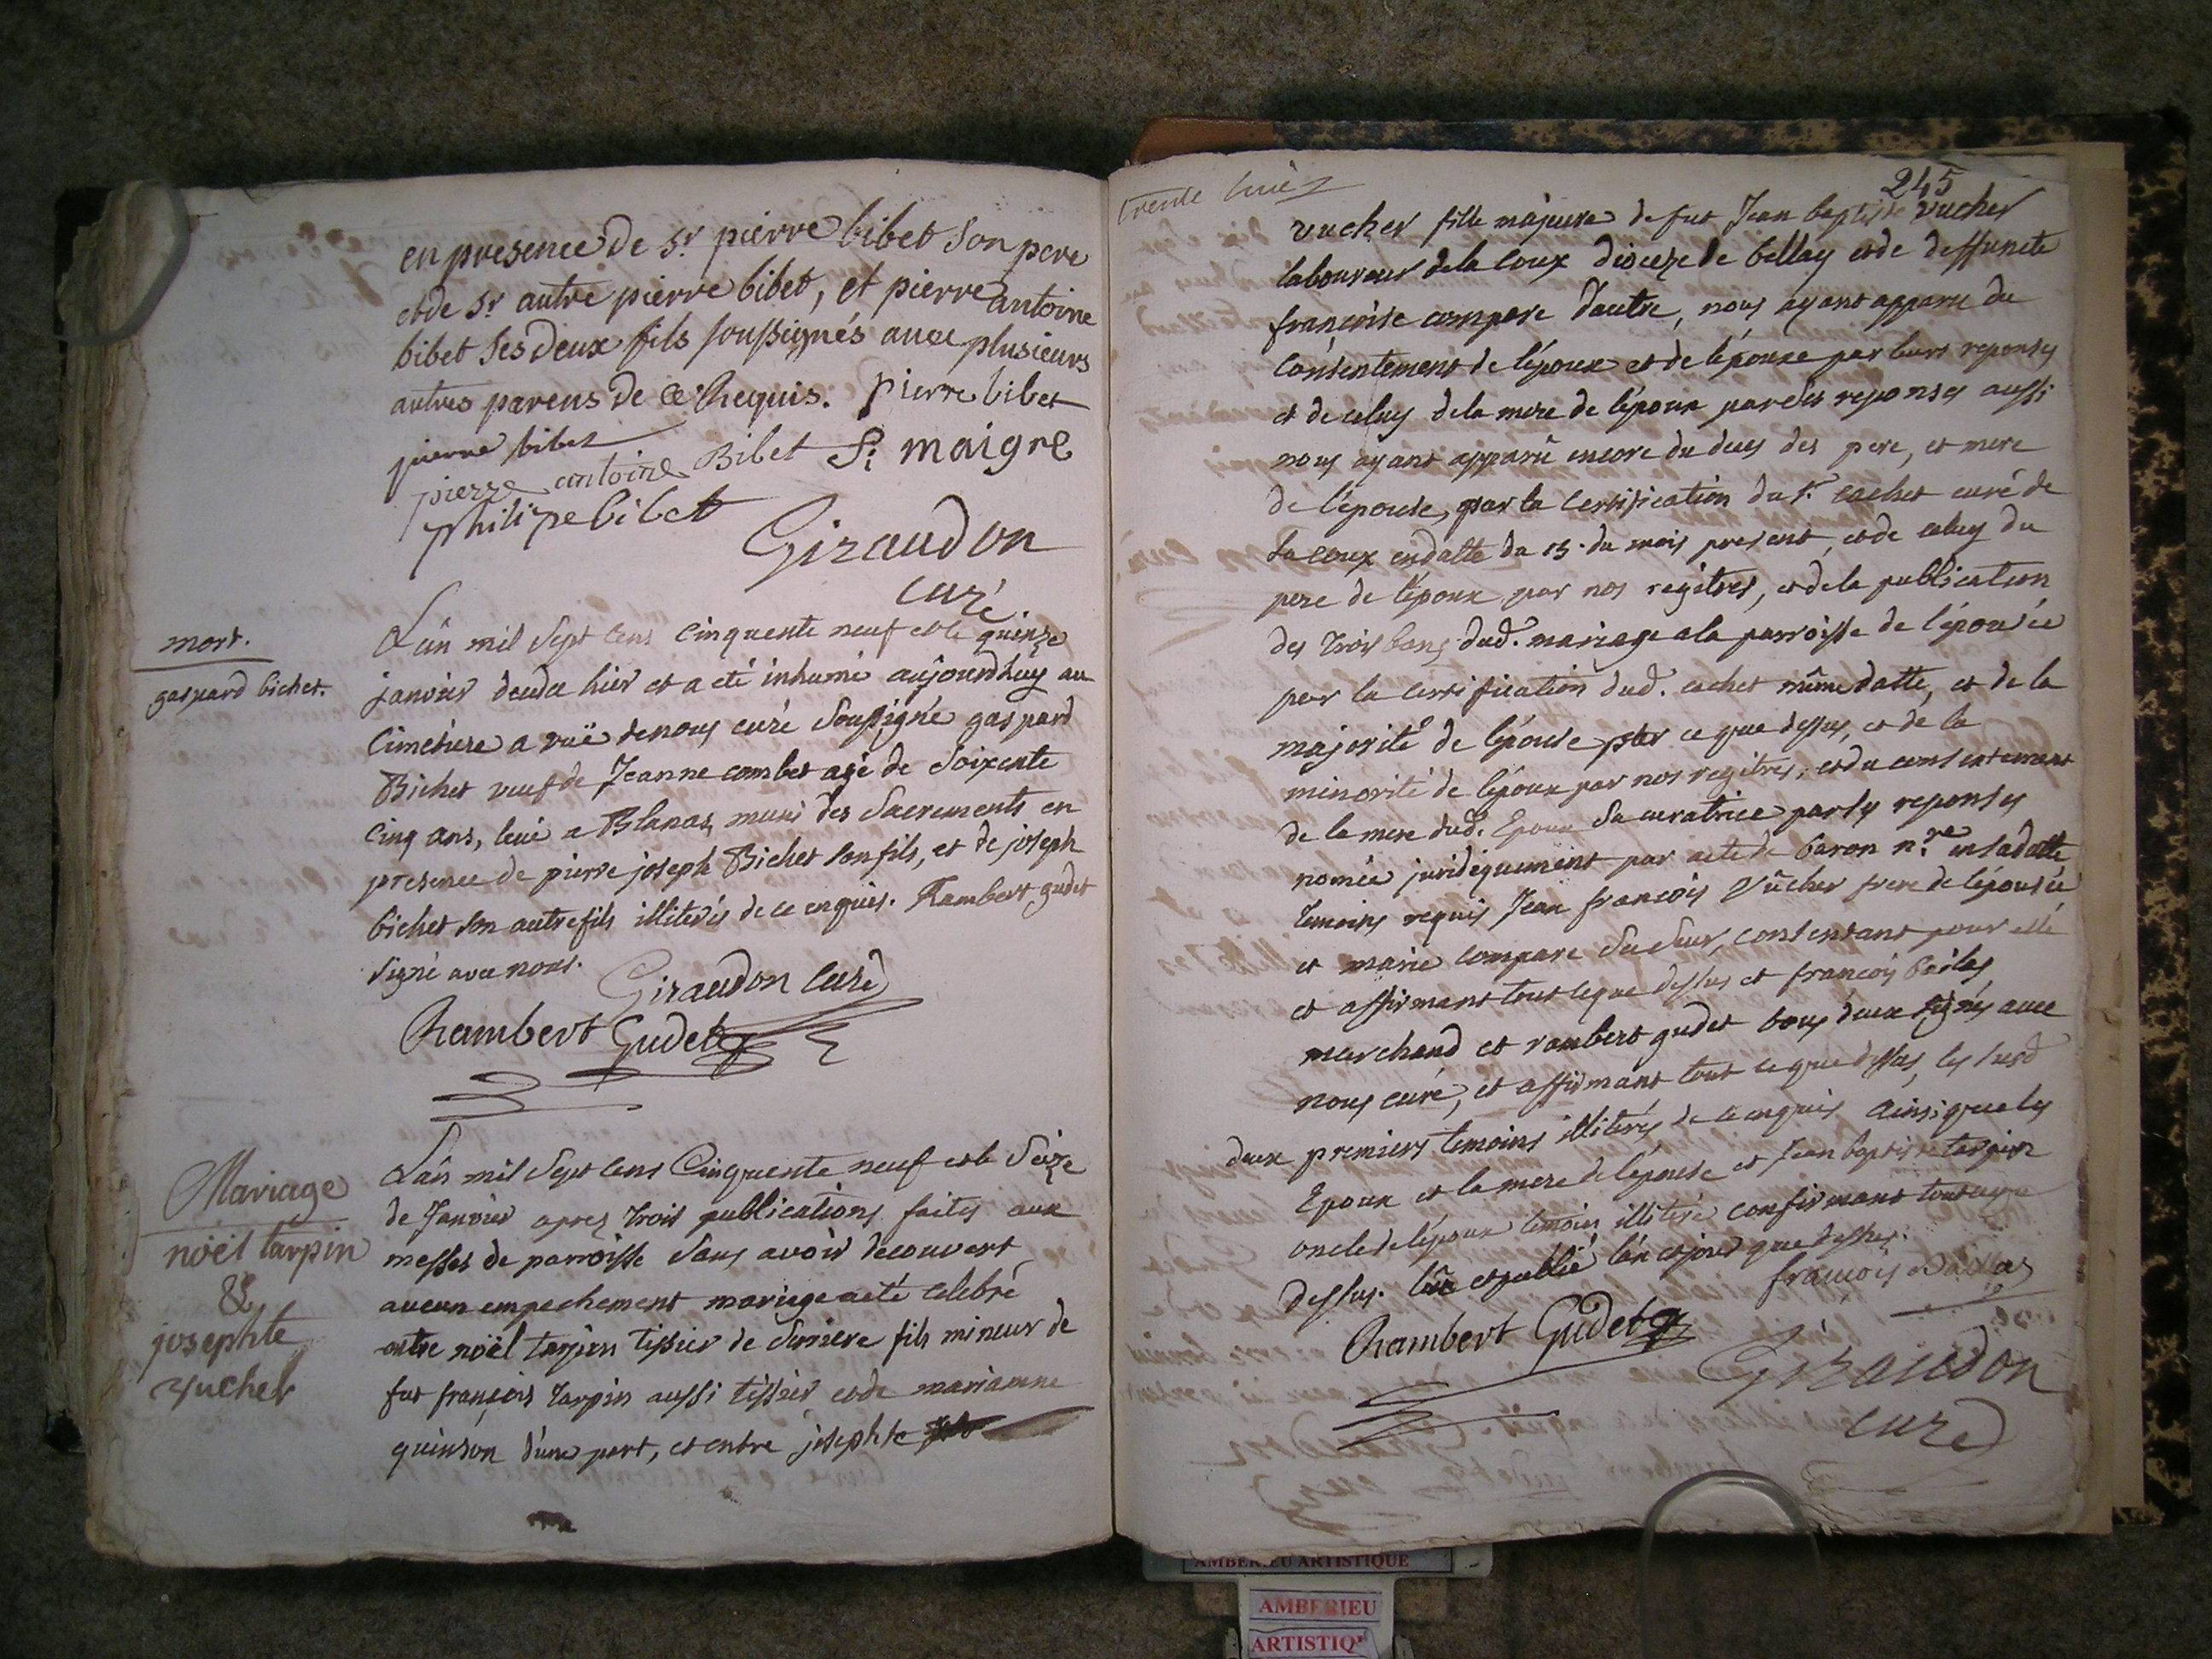 en presence de Sr. pierre bibet son pere
et de Sr. autre pierre bibet, et pierre antoine
bibet ses deux fils soussignés avec plusieurs
autres parens de ce Requis. pierre bibet
pierre bibet
pierre antoine Bibet maigre
philipe bibet
Giraudon
curé.
mort.
gaspard bichet.
L'an mil sept cens cinquente neuf et le quinze
janvier deceda hier et a eté inhumé aujourdhuy au
Cimetiere a vuë de nous curé soussigné gaspard
Bichet veuf de Jeanne combet agé de soixente
cinq ans, a Blanas muni des sacrements en
presence de pierre joseph Bichet son fils, et de joseph
bichet son autre fils illiterés de ce enquis. Rambert gudet
signé avec nous.
Giraudon curé
Rambert Gudet
Mariage
noël tarpin
&
josephte
vucher
L'an mil sept cens Cinquente neuf et le Seize
de Janvier apres trois publications faites aux
messes de parroisse sans avoir decouvert
aucun empechement mariage a eté celebré
entre noël tarpin tissier de fils mineur de
fut françois tarpin aussi tissier et de marianne
quinson d'une part, et entre josephte
trente
245
vucher fille majeure de fut Jean baptiste vucher
laboureur de la coux dioceze de bellay et de deffuncte
françoise compare d'autre, nous ayant apparu du
consentement de l'époux et de l'épouse par leurs reponses
et de celuy de la mere de l'époux par ses reponses aussi
nous ayant apparû encore du deces des pere, et mere
de l'épouse, par la certification du Sr. cachet curé de
la coux en datte du 13. du mois present, et de celuy du
pere de l'époux par nos regitres, et de la publication
des trois bans dud. mariage a la parroisse de l'épousée
par la certification dud. cachet même datte, et de la
majorité de l'épouse par ce que dessus, et de la
minorité de l'époux par nos regitres, et du consentement
de la mere dud. Epoux sa curatrice par ses reponses
nomée juridiquement par acte de baron nre. en sa datte
temoins requis Jean françois Vûcher frere de l'épousée
et marie compare consentant pour elle
et affirmant tout ce que dessus et françois
marchand et rambert gudet tous deux signés avec
nous curé, et affirmant tout ce que dessus, les susd
deux premiers temoins illiterés de ce enquis ainsi que les
Epoux et la mere de l'épouse et Jean baptiste tarpin
oncle de l'époux temoin illiteré confirmant tout ce que
dessus. lû et publié l'an et jour que dessus.
françois
Rambert Gudet
Giraudon
curé
AMBERIEU ARTISTIQUE
AMBERIEU
ARTISTIQ